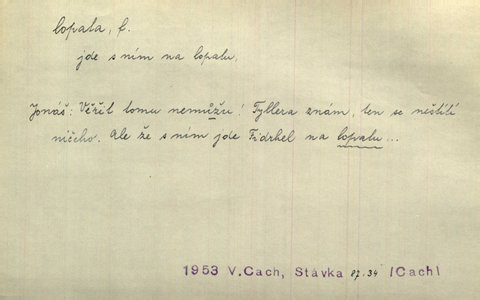 lopata, f.
jde s ním na lopatu.
Jonáš: Věřit tomu nemůžu! Tyllera znám, ten se neštítí
ničeho. Ale že s ním jde Fidrhel na lopatu...
1953 V.Cach, Stávka 87.34 /Cach/